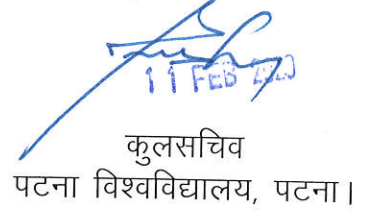 11 FEB
कुलसचिव
पटना विश्वविद्यालय, पटना।